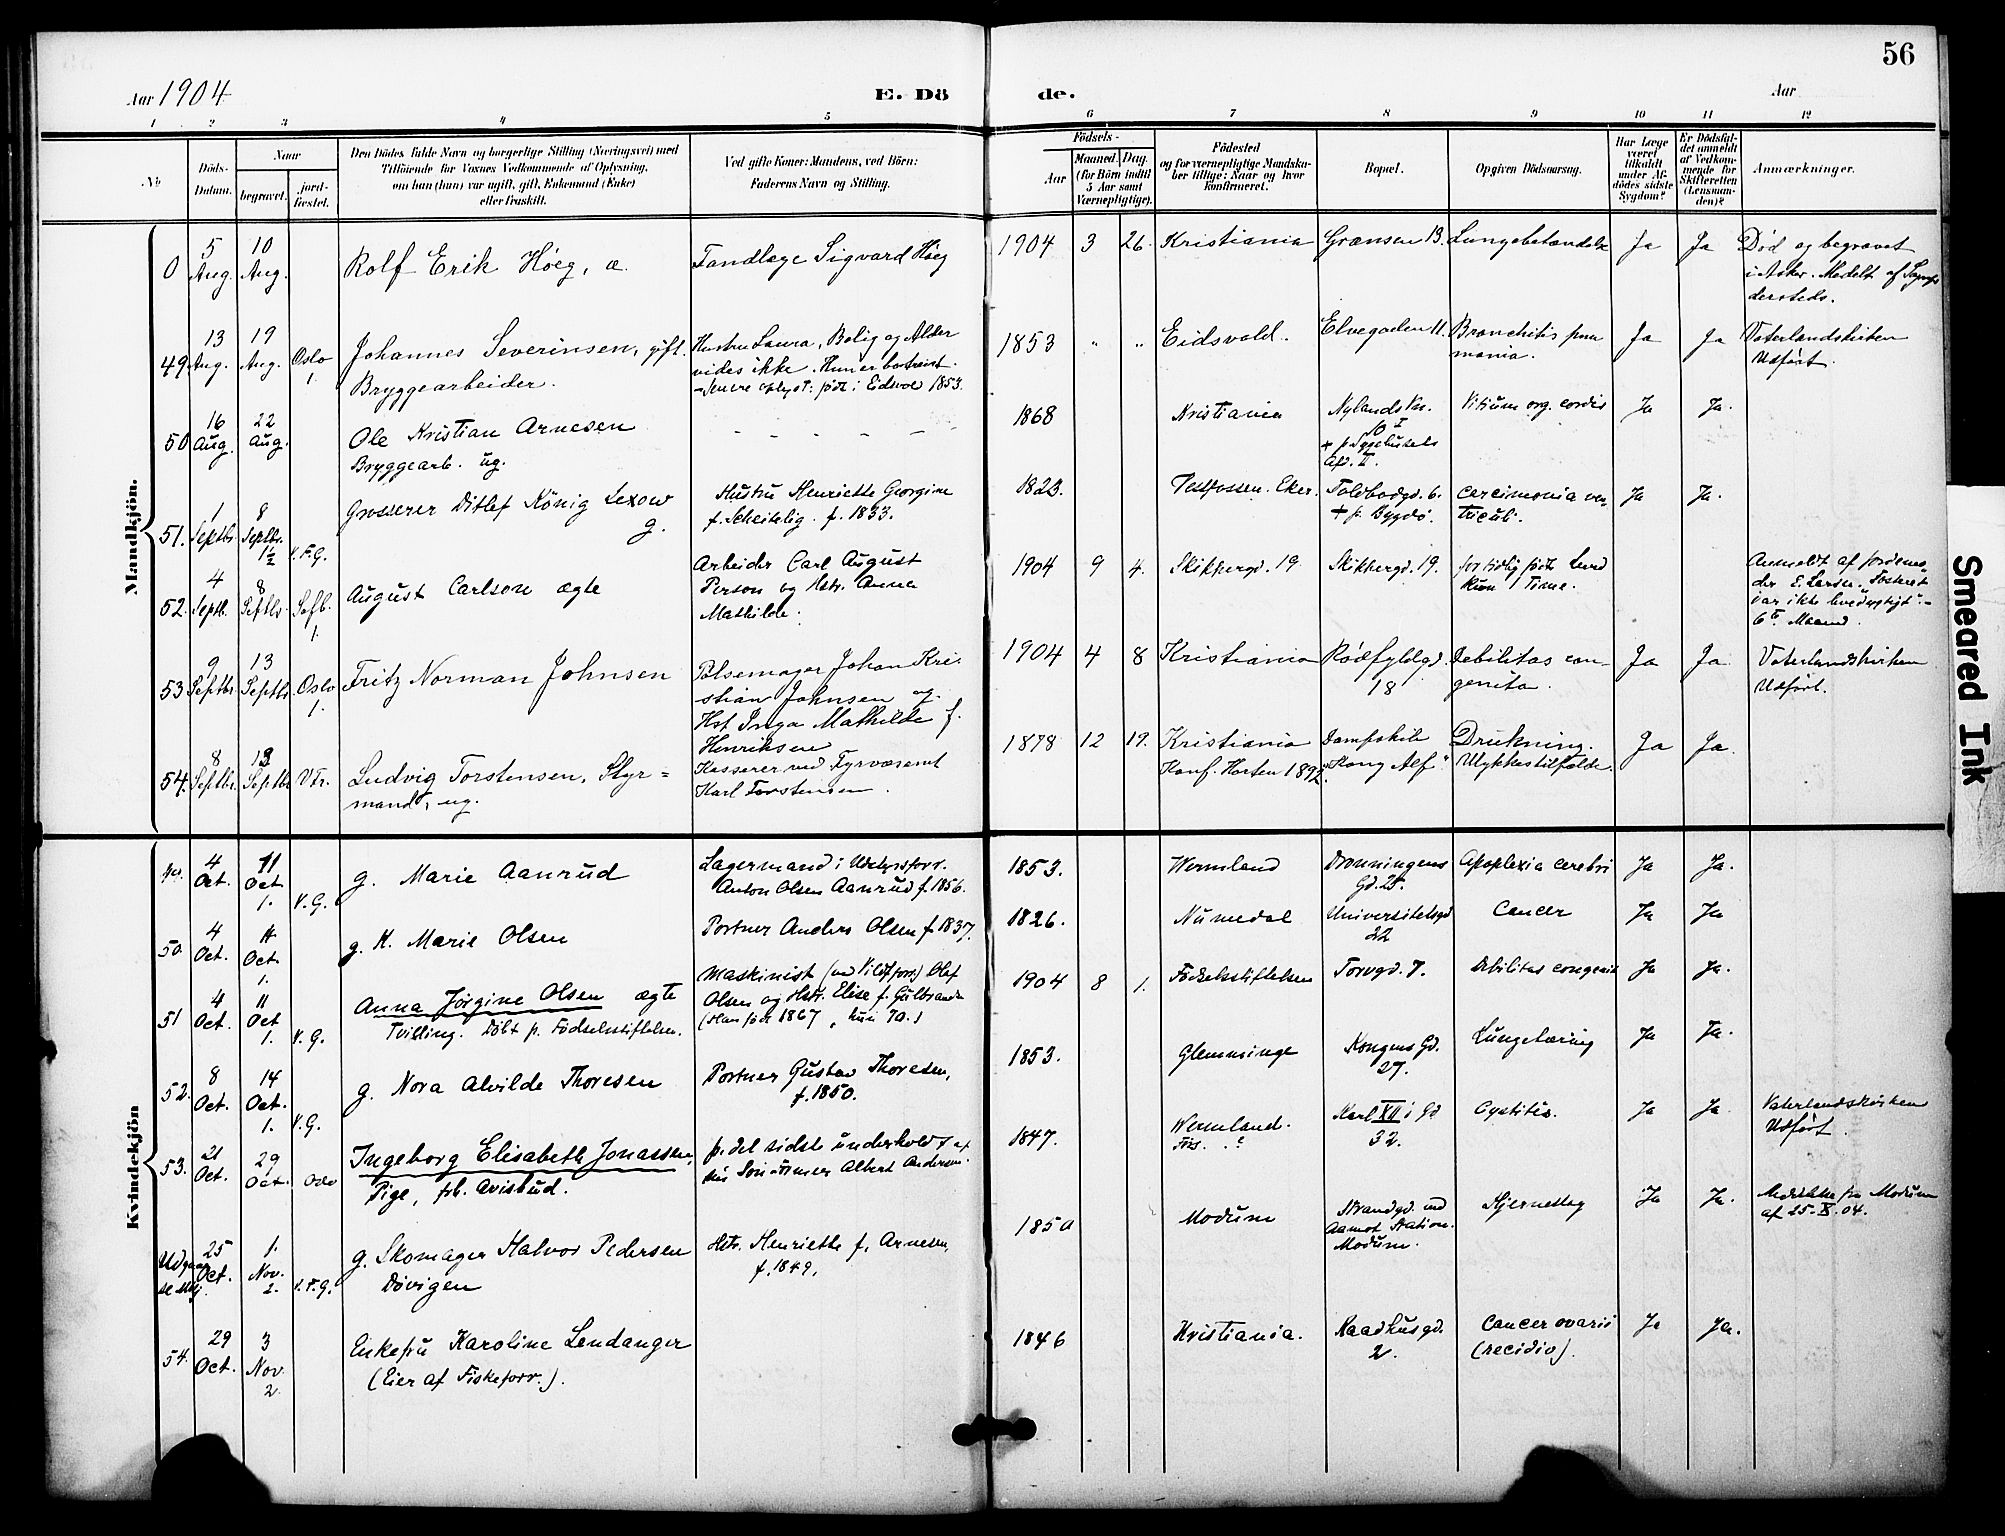 56
Aar 1904
E. Dö de.
Aar
1 2 3 4 5 6 7 8 9 10 11 12
No
Döds-
Datum.
Naar
begravet.
jord-
fæstet.
Den Dödes fulde Navn og borgerlige Stilling (Næringsvei) med
Tilföiende for Voxnes Vedkommende af Oplysning,
om han (hun) var ugift, gift, Enkemand (Enke)
eller fraskilt.
Ved gifte Koner: Mandens, ved Börn:
Faderens Navn og Stilling.
Födsels-
Aar
Maaned. Dag.
(for Börn indtil
5 Aar samt
Værnepligtige).
Födested
og for værnepligtige Mandska-
ber tillige: Naar og hvor
konfirmeret.
Bopæl.
Opgiven Dödsaarsag.
Har Læge
været
tilkaldt
under Af-
dödes sidste
Sygdom?
Er Dödsfal-
det anmeldt
af Vedkom-
mende for
Skifteretten
(Lensman-
den)?
Anmærkninger.
Mandkjön.
0 5 Aug. 10 Aug. Rolf Erik Höeg, æ. Tandlæge Sigvard Höeg 1904 3 26. Kristiania Grænsen 13. Lungebetændelse Ja Ja Död og begravet
i Asker. Medelt af
dersteds.
49 13 Aug. 19 Aug. Oslo 1. Johannes Severinsen, gift. Hustru Laura, Bolig og Alder 1853 " " Eidsvold. Elvegaden 11. Bronchitis pneu Ja Ja Vaterlandskirken
Bryggearbeider. vides ikke. Hun er bortreist. monia. Udført.
Senere oplyst: født i Eidsvol 1853.
50 16 Aug. 22 Aug. Ole Kristian Arnesen - - - - - 1868 Kristiania Nylandsvn. Vitium org. cordis Ja Ja.
Bryggearb. ug. 10 I
+ p. Sygehusets
Afd. II.
51. 1 Septbr. 8 Septbr. 1½ V.F.G. Grosserer Ditlef König Lexow Hustru Henriette Georgine 1823. Vestfossen. Eker. Toldbodgd. 6. Ja Ja.
g. f. Scheitelig. f. 1833. + p. Bygdö. triculi.
52. 4 Septb. 8 Septbr. Sofb. 1. August Carlson ægte Arbeider Carl August 1904 9 4. Skippergd. 19 Skippergd. 19. for tidlig født Levd Anmeldt af Jordemo-
Person og Hstr. Anna kun 1 Time. der E. Larsen. "Fosteret
Mathilde. var ikke levedygtigt".-
6te Maaned.
53 9 Septbr. 13 Septbr. Oslo 1. Fritz Norman Johnsen Pølsemager Johan Kri- 1904 4 8 Kristiania Rødfyldgd. Debilitas con- Ja Ja Vaterlandskirken
stian Johnsen og 18 genita. Udført.
Hst. Inga Mathilde f.
Henriksen
54. 8 Septbr. 13 Septbr. V.Fr. Ludvig Torstensen, Styr= Kasserer ved Fyrvæsent 1878 12 19. Kristiania Dampskib Drukning. Ja Ja.
mand, ug. Karl Torstensen. Konf. Horten 1892 "Kong Alf" Ulykkestilfælde.
Kvindekjön
49. 4 Oct. 11 Oct 1. V.G. g. Marie Aanrud Lagermand i 1853. Wermland Dronningens Apoplexia cerebri Ja Ja.
Anton Olsen Aanrud f. 1856. Gd. 25.
50. 4 Oct. 11 Oct. 1. g. K. Marie Olsen Portner Anders Olsen f. 1837. 1826. Numedal Universitetsgd 22 Cancer Ja Ja
51 4 Oct. 11 Oct 1. V.G. Anna Jørgine Olsen ægte Maskinist Olaf 1904 8 1. Fødselsstiftelsen Torvgd. 7. Debilitas congenit. Ja Ja.
Tvilling. Døbt p. Fødselsstiftelsen. Olsen og Hstr. Elise f. Gulbrandsen
(Han født 1867, hun 70.)
52. 8 Oct. 14 Oct. 1. V.G. g. Nora Alvilde Thoresen Portner Gustav Thoresen, 1853. Glemminge Kongens Gd. Lungetæring Ja Ja.
f. 1850. 27.
53. 21 Oct. 29 Oct. Oslo Ingeborg Elisabeth Jonassen, p. det sidste underholdt af 1847. Wermland. Karl XII i Gd Cystitis. Ja Ja. Vaterlandskirken
Pige, frh. Avisbud. sin Søn Albert Andersen. ? 32. Udført.
Udgaar 25 Oct. 1. Nov. 2. V.F.G. g. Skomager Halvor Pedersen Hstr. Henriette f. Arnesen, 1850 Modum Strandgd. ved Hjerneslag Ja Ja. Meddelelse fra Modum
Døvigen f. 1849. Aamot Station. af 25-X.04.
Modum.
54. 29 Oct. 3 Nov. 2 Enkefru Karoline Lendanger 1846 Kristiania. Raadhusgd. Cancer ovarii Ja Ja.
(Eier af Fiskeforr.). 2. (recidiv).
Smeared Ink